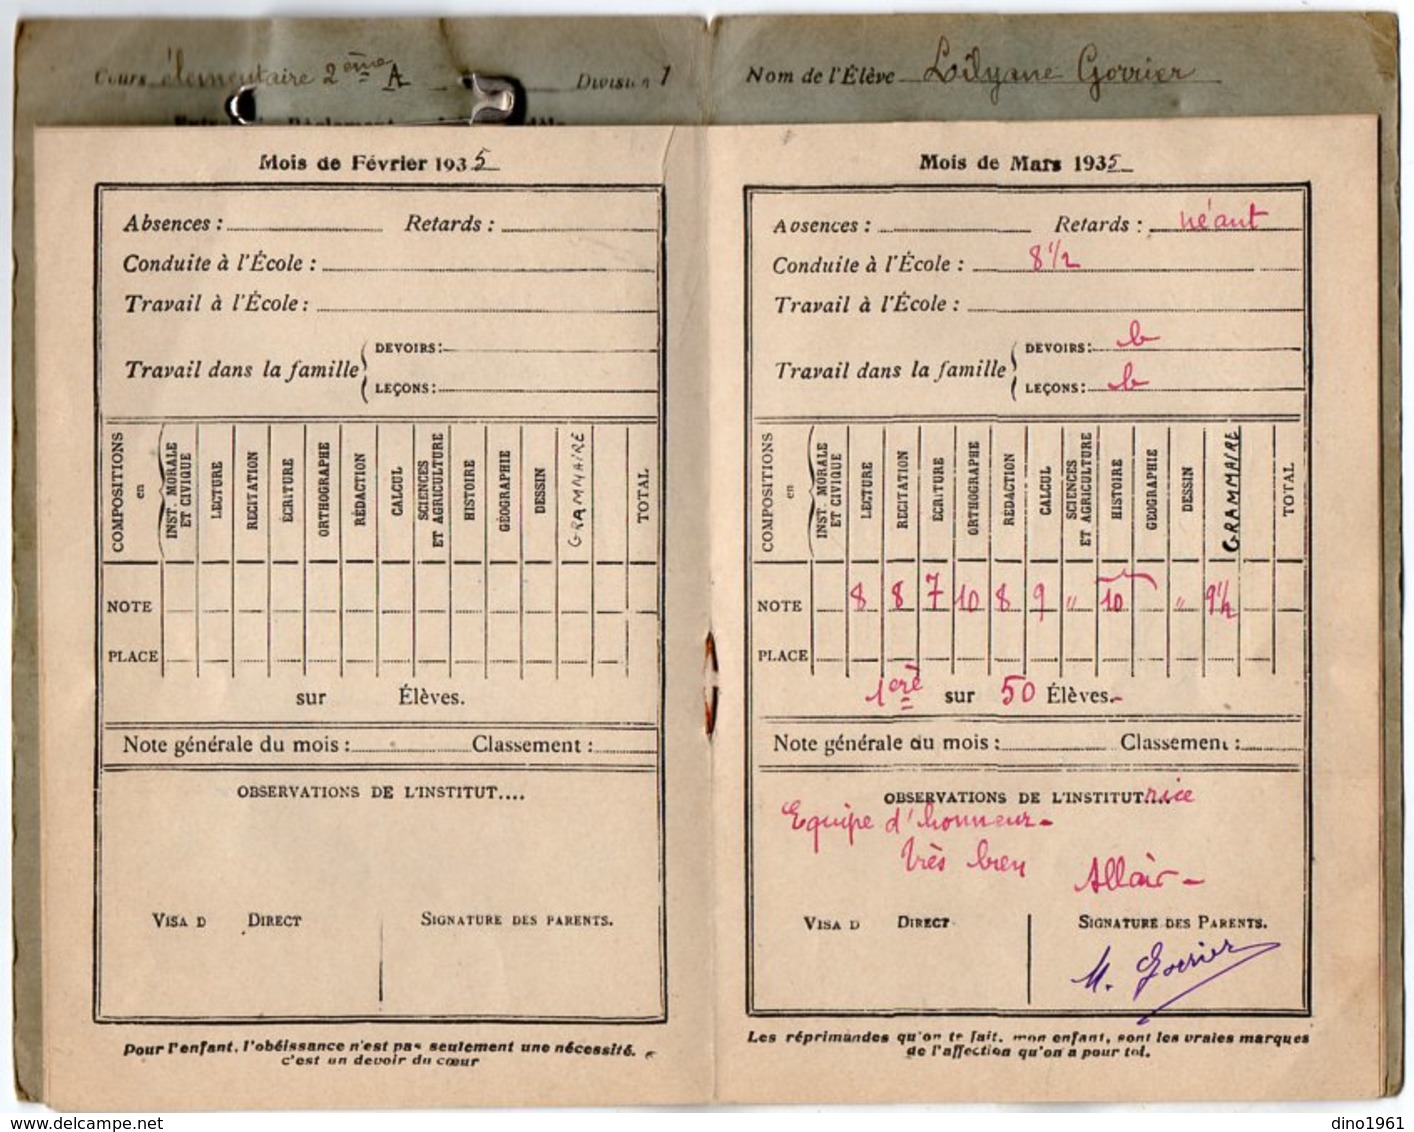 Cours élementaire 2ème A Division 1
Nom de l'Élève Lilyane Gorrier
Mois de Février 1935
Absences : Retards :
Conduite à l'École :
Travail à l'École :
Travail dans la famille
DEVOIRS :
LEÇONS :
COMPOSITIONS en
INST. MORALE ET CIVIQUE
LECTURE
RECITATION
ÉCRITURE
ORTHOGRAPHE
RÉDACTION
CALCUL
SCIENCES ET AGRICULTURE
HISTOIRE
GÉOGRAPHIE
DESSIN
GRAMMAIRE
TOTAL
NOTE
PLACE
sur Élèves.
Note générale du mois : Classement :
OBSERVATIONS DE L'INSTITUT....
VISA D DIRECT SIGNATURE DES PARENTS.
Pour l'enfant, l'obéissance n'est pas seulement une nécessité,
c'est un devoir du cœur
Mois de Mars 1935
Absences : Retards : néant
Conduite à l'École : 8 1/2
Travail à l'École :
Travail dans la famille
DEVOIRS : b
LEÇONS : b
COMPOSITIONS en
INST. MORALE ET CIVIQUE
LECTURE
RECITATION
ÉCRITURE
ORTHOGRAPHE
RÉDACTION
CALCUL
SCIENCES ET AGRICULTURE
HISTOIRE
GÉOGRAPHIE
DESSIN
GRAMMAIRE
TOTAL
NOTE 8 8 7 10 8 9 " 10 " 9 1/2
PLACE
1erè sur 50 Élèves.
Note générale du mois : Classement :
OBSERVATIONS DE L'INSTITUTrice
Equipe d'honneur -
Très bien
Allair -
VISA D DIRECT SIGNATURE DES PARENTS.
M. Gorrier
Les réprimandes qu'on te fait, mon enfant, sont les vraies marques
de l'affection qu'on a pour toi.
www.delcampe.net
dino1961